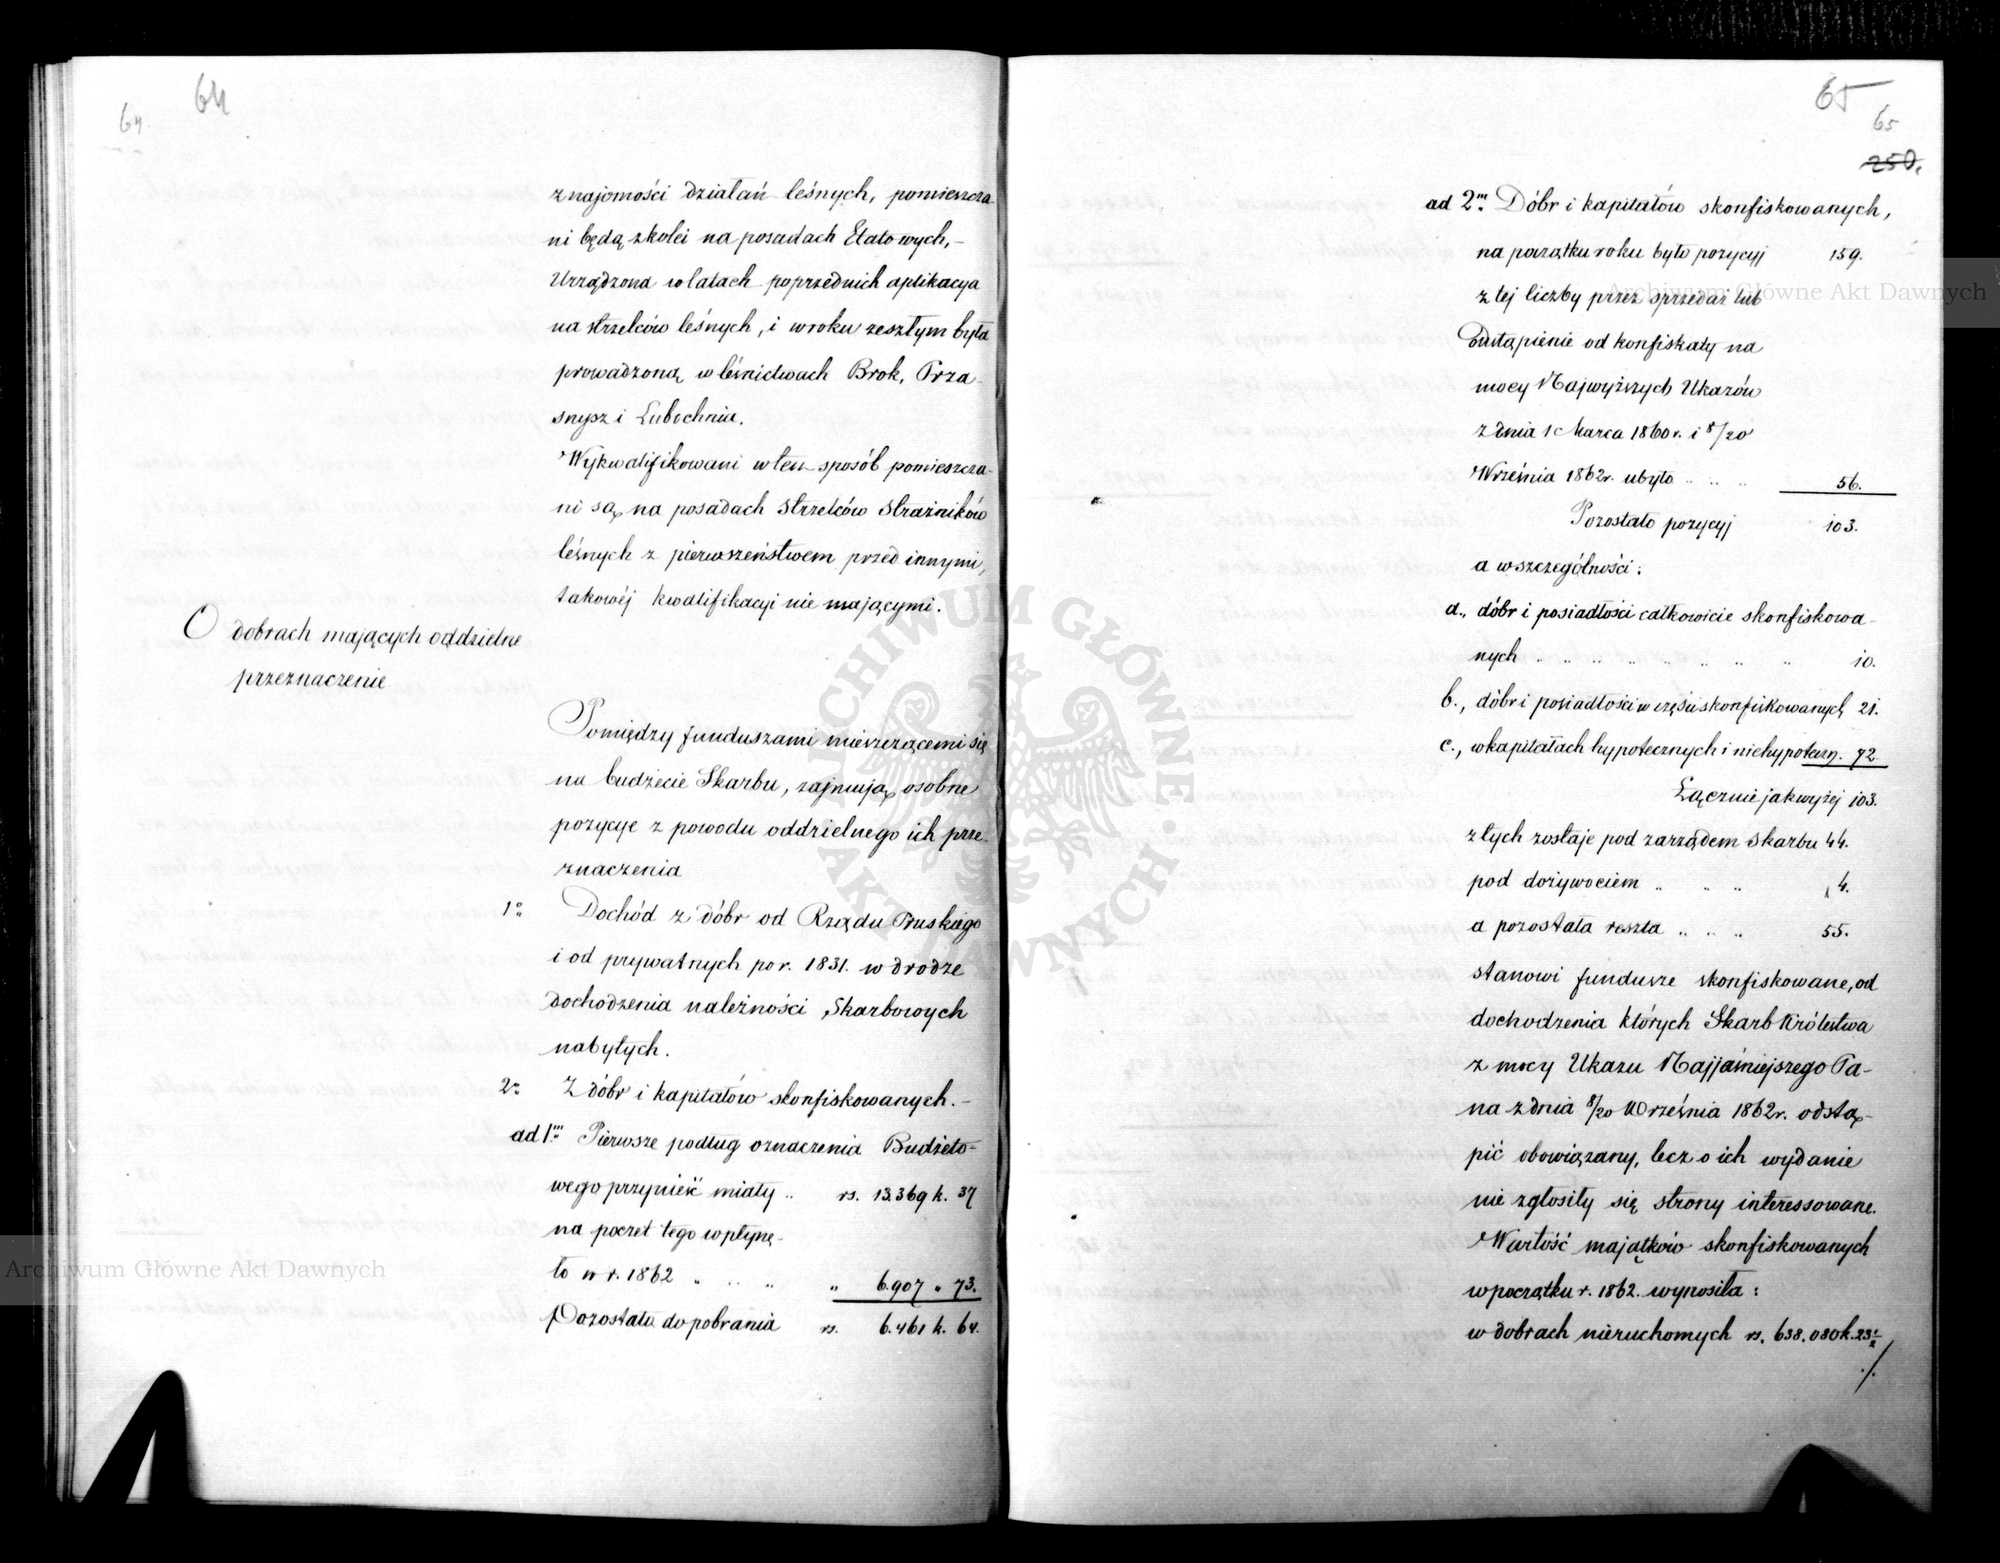 64
64
znajomości działań leśnych, pomieszcza-
ni będą z kolei na posadach Etatowych,-
Urządzona w latach poprzednich aplikacya
na strzelców leśnych, i w roku zeszłym była
prowadzoną w leśnictwach Brok, Prza-
snysz i Lubochnia.
Wykwalifikowani w ten sposób pomieszcza-
ni są, na posadach Strzelców Strażników
leśnych z pierwszeństwem przed innymi,
takowéj kwalifikacyi nie mającymi.
O dobrach mających oddzielne
przeznaczenie
Pomiędzy funduszami mieszczącemi się
na budżecie Skarbu, zajmują osobne
pozycye z powodu oddzielnego ich prze-
znaczenia
1º Dochód z dóbr od Rządu Pruskiego
i od prywatnych po r. 1831. w drodze
dochodzenia należności Skarbowych
nabytych.
2º Z dóbr i kapitałów skonfiskowanych.-
ad 1m Pierwsze podług oznaczenia Budżeto-
wego przynieść miały .. rs. 13.369 k. 37
na poczet tego wpłynę-
ło w r. 1862 " .. " " 6.907 " 73.
Pozostało do pobrania rs. 6.461 k. 64.
65
65
250.
ad 2m Dóbr i kapitałów skonfiskowanych,
na początku roku było pozycyj 159.
z tej liczby przez sprzedaż lub
odstąpienie od konfiskaty na
mocy Najwyższych Ukazów
z dnia 1 Marca 1860 r. i 8/20
Września 1862 r. ubyło .. .. .. 56.
Pozostało pozycyj 103.
a w szczególności:
a., dóbr i posiadłości całkowicie skonfiskowa-
nych " " " " " " " " 10.
b., dóbr i posiadłości w części skonfiskowanych 21.
c., w kapitałach hypotecznych i niehypotecz. 72.
Łącznie jak wyżej 103.
z tych zostaje pod zarządem Skarbu 44.
pod dożywociem " " " 4.
a pozostała reszta " " " 55.
stanowi fundusze skonfiskowane, od
dochodzenia których Skarb Królestwa
z mocy Ukazu Najjaśniejszego Pa-
na z dnia 8/20 Września 1862 r. odstą-
pić obowiązany, lecz o ich wydanie
nie zgłosiły się strony interessowane.
Wartość majątków skonfiskowanych
w początku r. 1862. wynosiła:
w dobrach nieruchomych rs. 638.080 k. 23½
./.
Archiwum Główne Akt Dawnych
Archiwum Główne Akt Dawnych
ARCHIWUM GŁÓWNE · AKT DAWNYCH ·